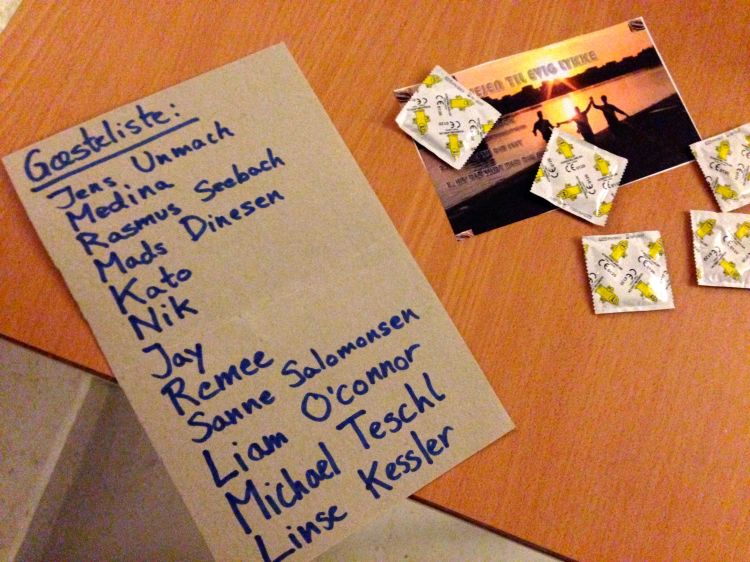 Gæsteliste:
Jens Unmach
Medina
Rasmus Seebach
Mads Dinesen
Kato
Nik
Jay
Remee
Sanne Salomonsen
Liam O'connor
Michael Teschl
Linse Kessler
VEJEN TIL EVIG LYKKE